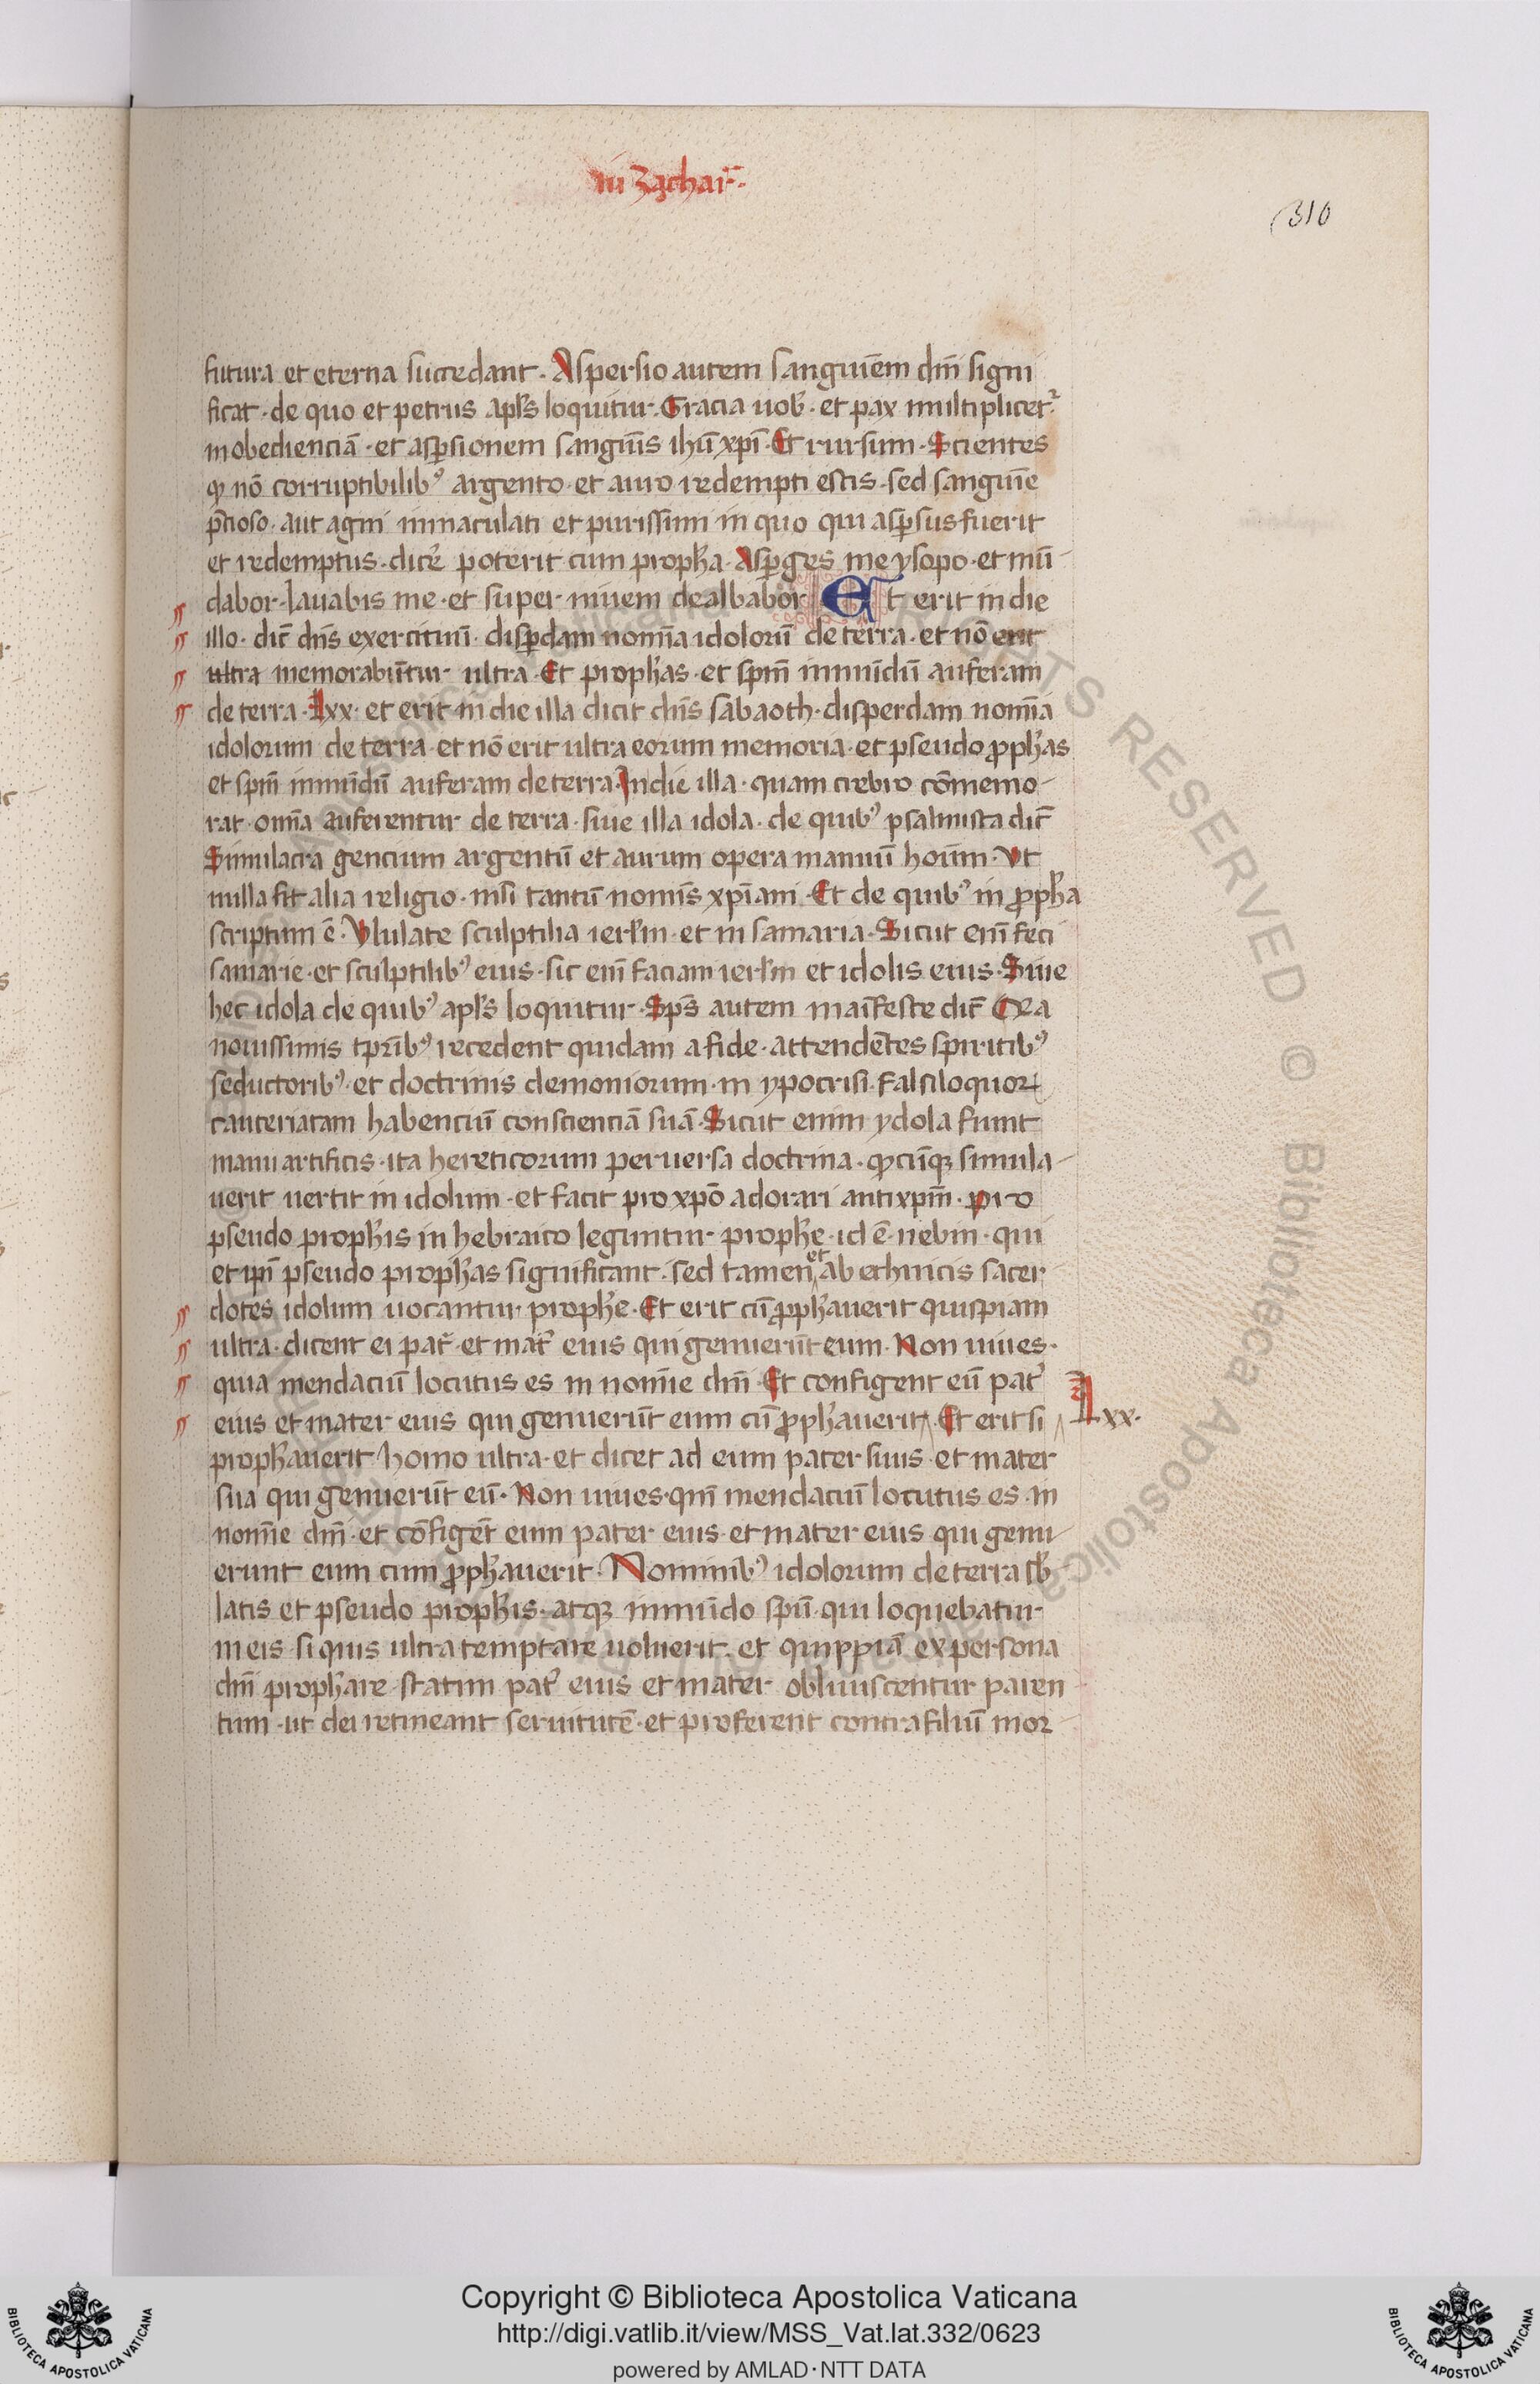 in zachar̄.
310
futura et eterna succedant. Aspersio autem sanguinẽm dn̄i signi
ficat. de quo et petrus apl's loquitur. Gracia uob'. et pax multiplicet᷑
in obedienciā. et asꝑsionem sanguīs ihū xp̄i. Et rursum. Scientes
ꝙ nō corruptibilibꝰ argento. et auro redempti estis. sed sanguīe
p̄cioso. aut agni inmaculati et purissimi in quo qui asꝑsus fuerit
et redemptus. dicer̄ poterit cum proph'a. Asꝑges me ysopo. et mū
dabor. lauabis me. et super niuem dealbabor Et erit in die
illo. dic̄ dn̄s exercituū. disꝑdam nomīa idolorū de terra. et nō erit
ultra memorabūtur ultra. Et proph'as. et sp̄m inmūdū auferam
de terra. Lxx. et erit in die illa dicit dn̄s sabaoth. disperdam nomīa
idolorum de terra. et nō erit ultra eorum memoria. et pseudo ꝓph'as
et sp̄m inmūdū auferam de terra. In die illa. quam crebro cōmemo
rat. omīa auferentur de terra. siue illa idola. de quibꝰ psalmista dic̄
Simulacra gencium argentū et aurum opera manuū hoīum. Vt
nulla sit alia religio. nisi tantū nomīs xp̄iani. Et de quibꝰ in ꝓph'a
scriptum ē. Vlulate sculptilia ierl'm. et in samaria. Sicut enī feci
samarie. et sculptilibꝰ eius. sic enī faciam ierl'm et idolis eius. Siue
hec idola de quibꝰ apl's loquitur. Sp̄s autem maīfeste dic̄ Qia
nouissimis tp̄ribꝰ recedent quidam a fide. attendētes spiritibꝰ
seductoribꝰ. et doctrinis demoniorum. in ypocrisi. falsiloquoꝝ
cauteriatam habenciū conscienciā suā. Sicut enim ydola fiunt
manu artificis. ita hereticorum peruersa doctrina. ꝙcūqꝫ simula
uerit uertit in idolum. et facit pro xp̄o adorari antixp̄m. Pro
pseudo proph'is in hebraico leguntur proph'e. id ē. nebiin. qui
et ip̄i pseudo proph'as significant. sed tamen et ab ethnicis sacer
dotes idolum uocantur proph'e. Et erit cū ꝓph'auerit quispiam
ultra. dicent ei pat᷑. et mat᷑ eius qui genuerūt eum. Non uiues.
quia mendaciū locutus es in nomīe dn̄i. Et configent eū pat᷑
eius et mater eius qui genuerūt eum cū ꝓph'auerit. Et erit si
Lxx.
proph'auerit homo ultra. et dicet ad eum pater suus et mater
sua qui genuerūt eū. Non uiues. qm̄ mendaciū locutus es in
nomīe dn̄i. et cōfigēt eum pater eius. et mater eius qui genu
erunt eum cum ꝓph'auerit. Nominibꝰ idolorum de terra sb'
latis et pseudo proph'is. atqꝫ inmūdo sp̄u. qui loquebatur
in eis. si quis ultra temptare uoluerit. et quippiā ex persona
dn̄i proph'are. statim pat᷑ eius et mater obliuiscentur paren
tum. ut dei retineant seruitutē. et proferent contra filiū mor
Copyright © Biblioteca Apostolica Vaticana
http://digi.vatlib.it/view/MSS_Vat.lat.332/0623
powered by AMLAD·NTT DATA